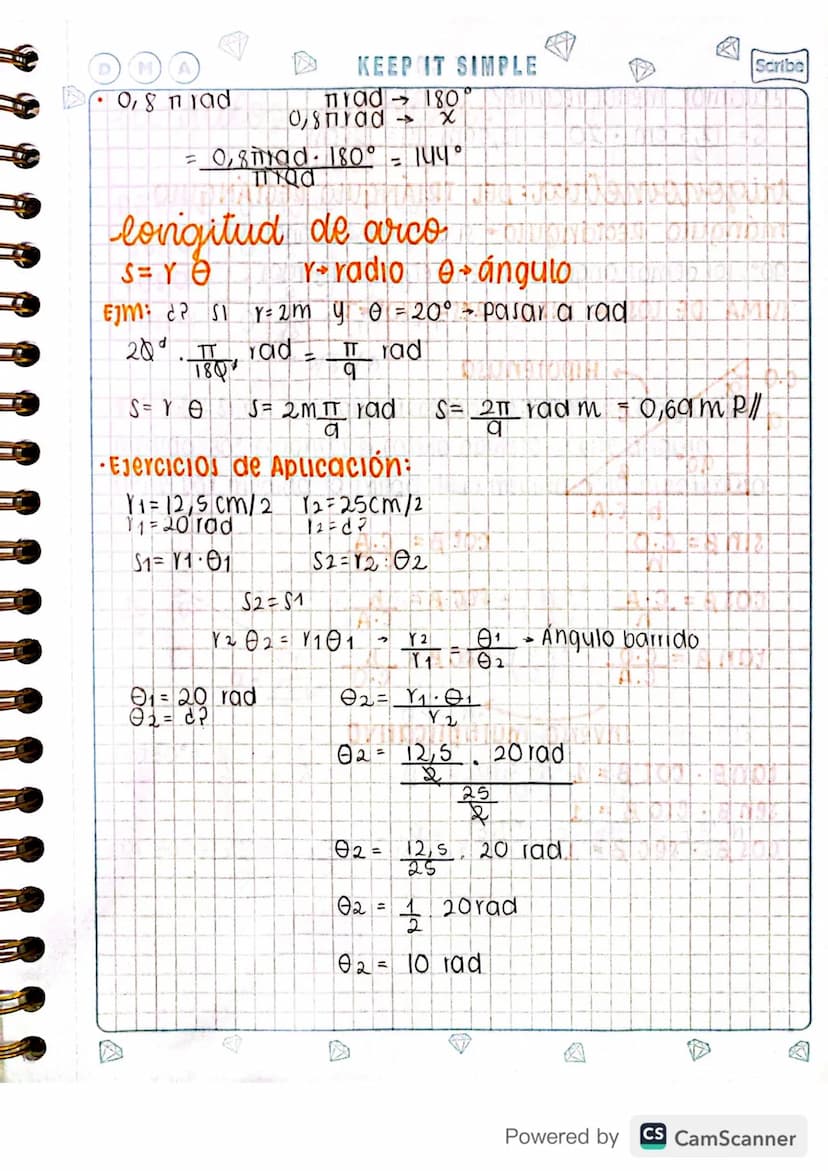 D M A KEEP IT SIMPLE Scribe
• 0,8 π rad π rad → 180°
0,8π rad → x
= 0,8πrad · 180° = 144°
πrad
longitud de arco
S = r θ r → radio θ → ángulo
EJM: ¿? SI r = 2m y θ = 20° → pasar a rad
20° · π rad = π rad
180° 9
S = r θ S = 2m π rad S = 2π rad m = 0,69 m R//
9 9
• Ejercicios de Aplicación:
r1 = 12,5 cm/2 r2 = 25cm/2
r1 = 20 rad r2 = ¿?
S1 = r1 · θ1 S2 = r2 · θ2
S2 = S1
r2 θ2 = r1θ1 → r2 = θ1 → Ángulo barrido
r1 θ2
θ1 = 20 rad θ2 = r1 · θ1
θ2 = ¿? r2
θ2 = 12,5 · 20 rad
2
25
2
θ2 = 12,5 · 20 rad
25
θ2 = 1 20 rad
2
θ2 = 10 rad
Powered by CS CamScanner